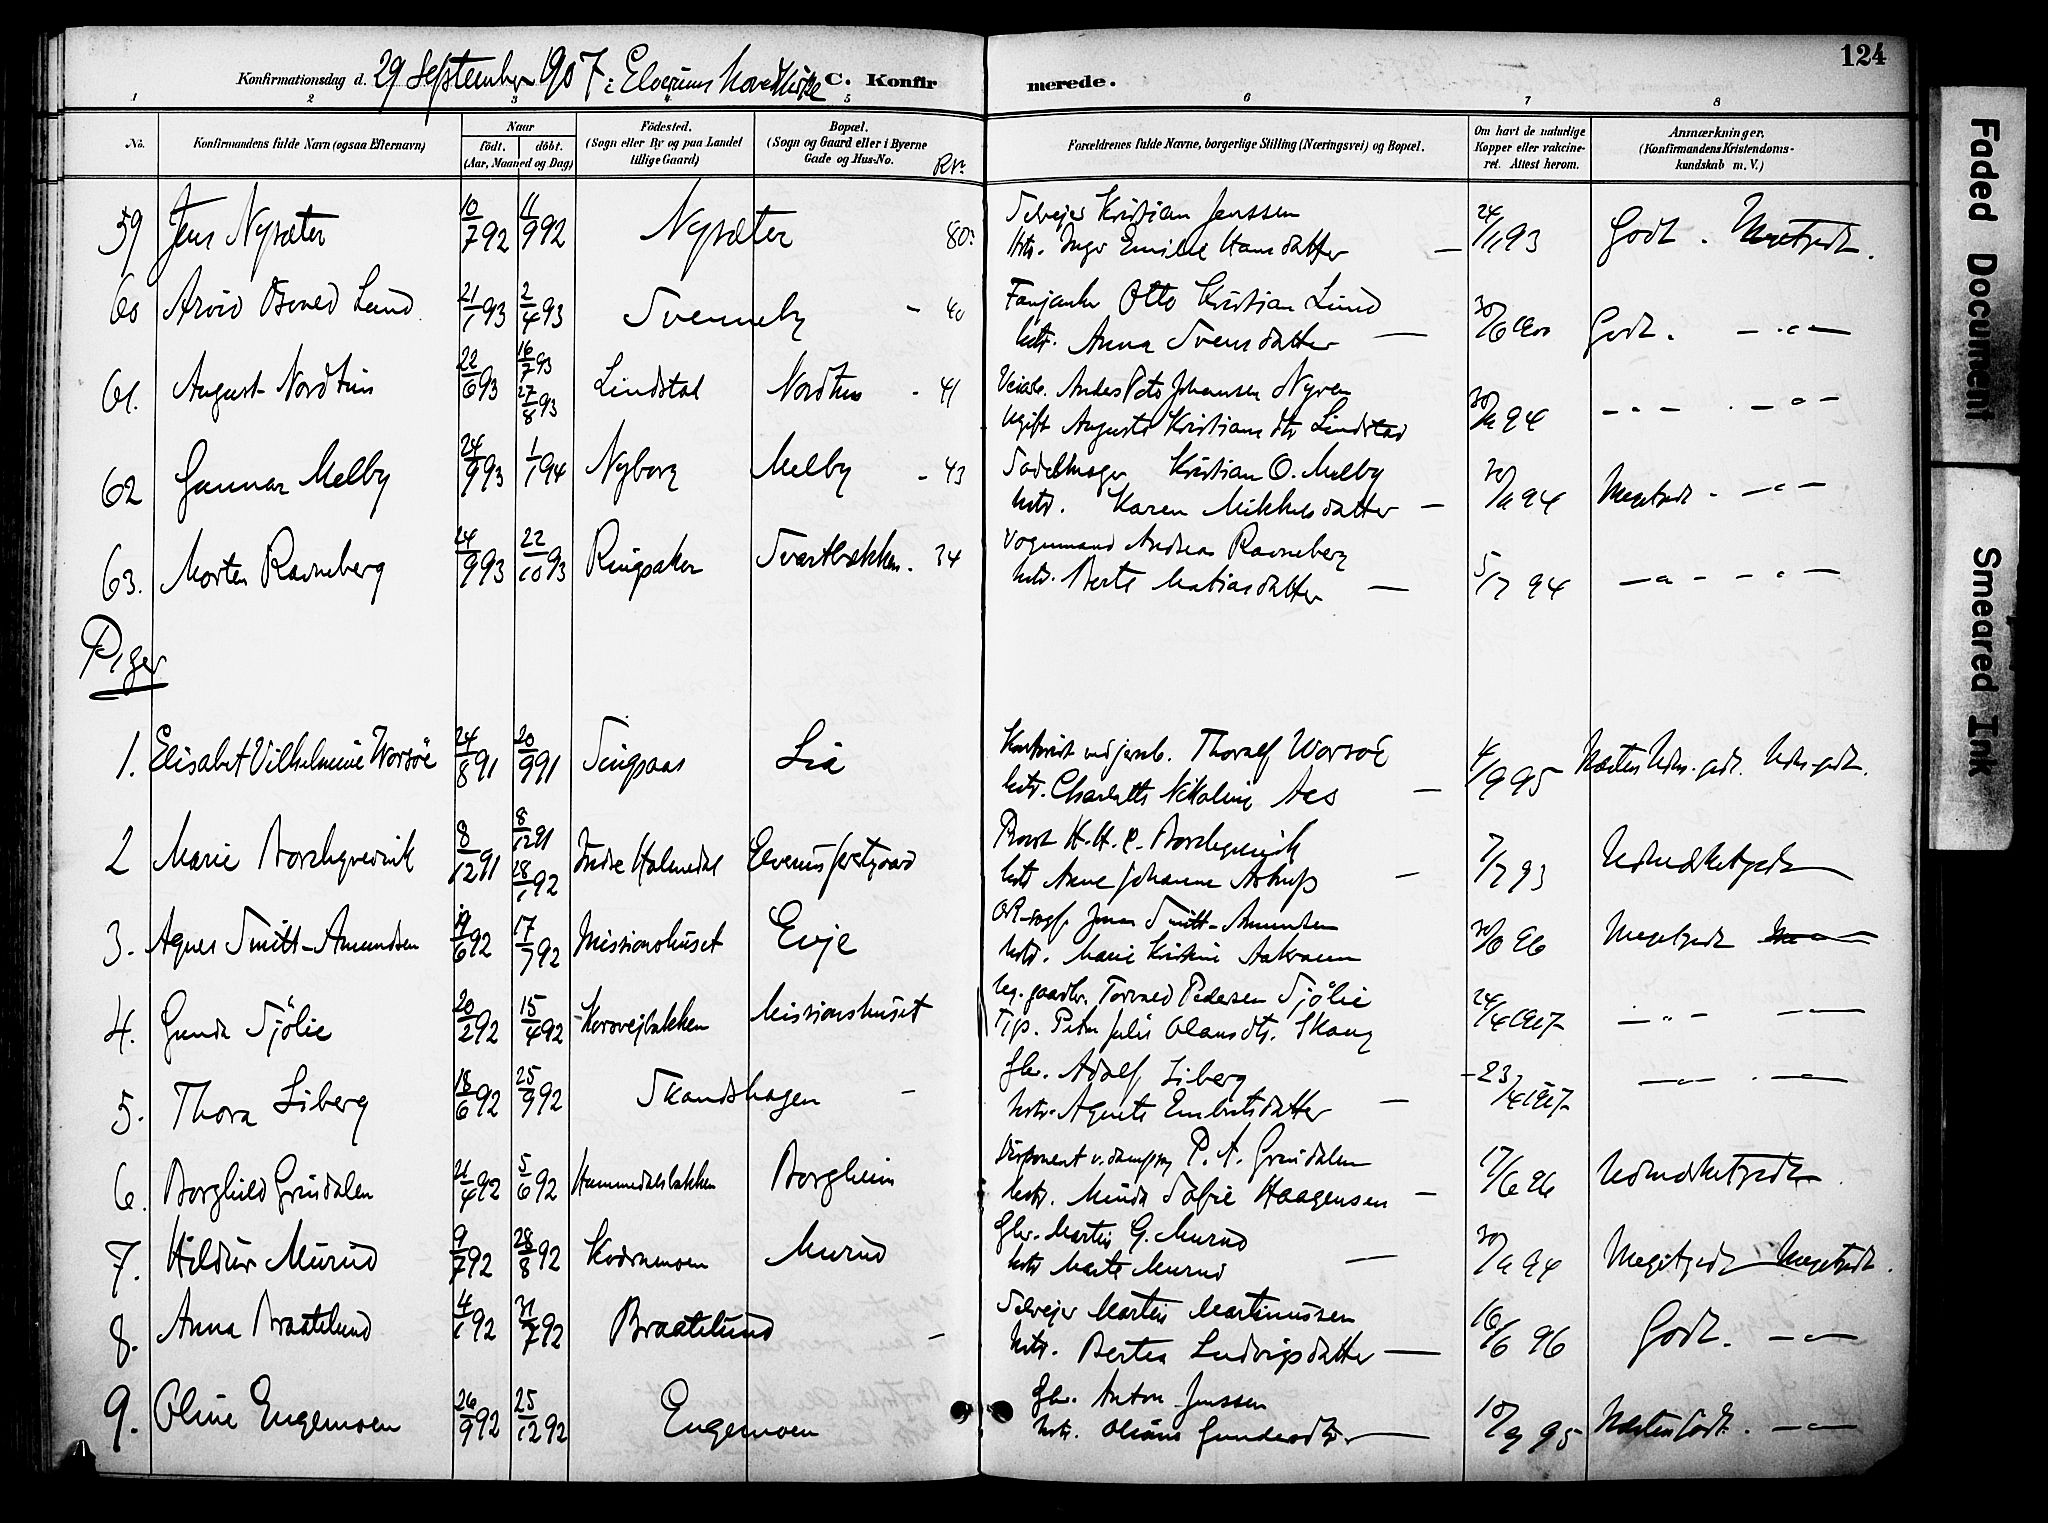 124
Konfirmationsdag d. 29 September 1907 i Elverums Hovedkirke C. Konfirmerede.
1 2 3 4 5 6 7 8
No. Konfirmandens fulde Navn (ogsaa Efternavn) Naar født. døbt. (Aar, Maaned og Dag) Fødested. (Sogn eller By og paa Landet tillige Gaard) Bopæl. (Sogn og Gaard eller i Byerne Gade og Hus-No. Forældrenes fulde Navne, borgerlige Stilling (Næringsvei) og Bopæl. Om havt de naturlige Kopper eller vakcineret. Attest herom. Anmærkninger. (Konfirmandens Kristendomskundskab m. V.)
59 Jens Nysæter 10/7 92 11/9 92 Nysæter 80. Selvejer Kristian Jenssen
Hstr. Inger Emilie Hansdatter — 24/11 93 Godt. Megetgodt.
60 Arvid Osvald Lund 21/1 93 2/4 93 Svenneby - 40 Fanjunker Otto Kristian Lund
hstr. Anna Svensdatter — 30/6 1900 Godt. — " —
61. August Nordhus 22/6 93 16/7 93 27/8 93 Lindstad Nordhus - 41 Anders Peter Johansen Nyren
Ugift Auguste Kristiansdtr Lindstad 94 — " — . — " —
62 Gunnar Melby 24/9 93 1/1 94 Nyborg Melby - 43 Sadelmager Kristian O. Melby
hstr. Karen Mikkelsdatter — 94 Megetgodt. — " —
63. Morten Ravneberg 24/9 93 22/10 93 Ringsaker Svartbækken. 34 Vognmand Andreas Ravneberg
hstr. Berte Matiasdatter — 5/7 94 — " — — " —
Piger
1. Elisabet Vilhelmine Worsöe 24/8 91 20/9 91 Singsaas Lia Kontorist ved jernb. Thoralf Worsöe
hstr. Charlotte Nikoline Aas — 4/9 95 Næsten Udm. godt. Udm. godt.
2 Marie Borchgrevink 8/12 91 8/12 91 28/1 92 Indre Holmedal Elverums prestgaard Provst H. H. C. Borchgrevink
hstr Anne Johanne Astrup — 7/7 93 Udmærketgodt
3. Agnes Smitt-Amundsen 19/6 92 17/7 92 Missionshuset Evje OR-sagf. Smitt-Amundsen
hstr. Marie Kristine Aakrann 96 Megetgodt — " —
4. Gunda Sjölie 20/2 92 15/4 92 Korsvejbakken Missionshuset Ug. gaardbr. Torvald Pedersen Sjölie
Tjp. Petra Julie Olausdtr. Skaug 24/4 1907 — " — —
5. Thora Liberg 18/6 92 25/9 92 Skandshagen - Gbr. Adolf Liberg
hstr. Agnete Embretsdatter — 23/4 1907 — " — . — " —
6. Borghild Grindalen 21/4 92 5/6 92 Hummeldalsbakken Borgheim Disponent v. dampsag P. A. Grindalen
hstr. Minda Sofie Haagensen — 17/6 96 Udmærketgodt.
7. Hildur Murud 9/7 92 28/8 92 Kværnmoen Murud Gbr. Martin G. Murud
hstr Marte Murud — 94 Megetgodt Megetgodt.
8. Anna Braatelund 4/1 92 31/7 92 Braatelund - Selvejer Martin Martinussen
hstr. Bertea Ludvigsdatter — 16/6 96 Godt. — " —
9. Oline Engemoen 26/9 92 25/12 92 Engemoen Gbr. Anton Jenssen
hstr. Oliane Gundersdtr — 10/9 95 Næsten Godt. — " —
Faded Document
Smeared Ink